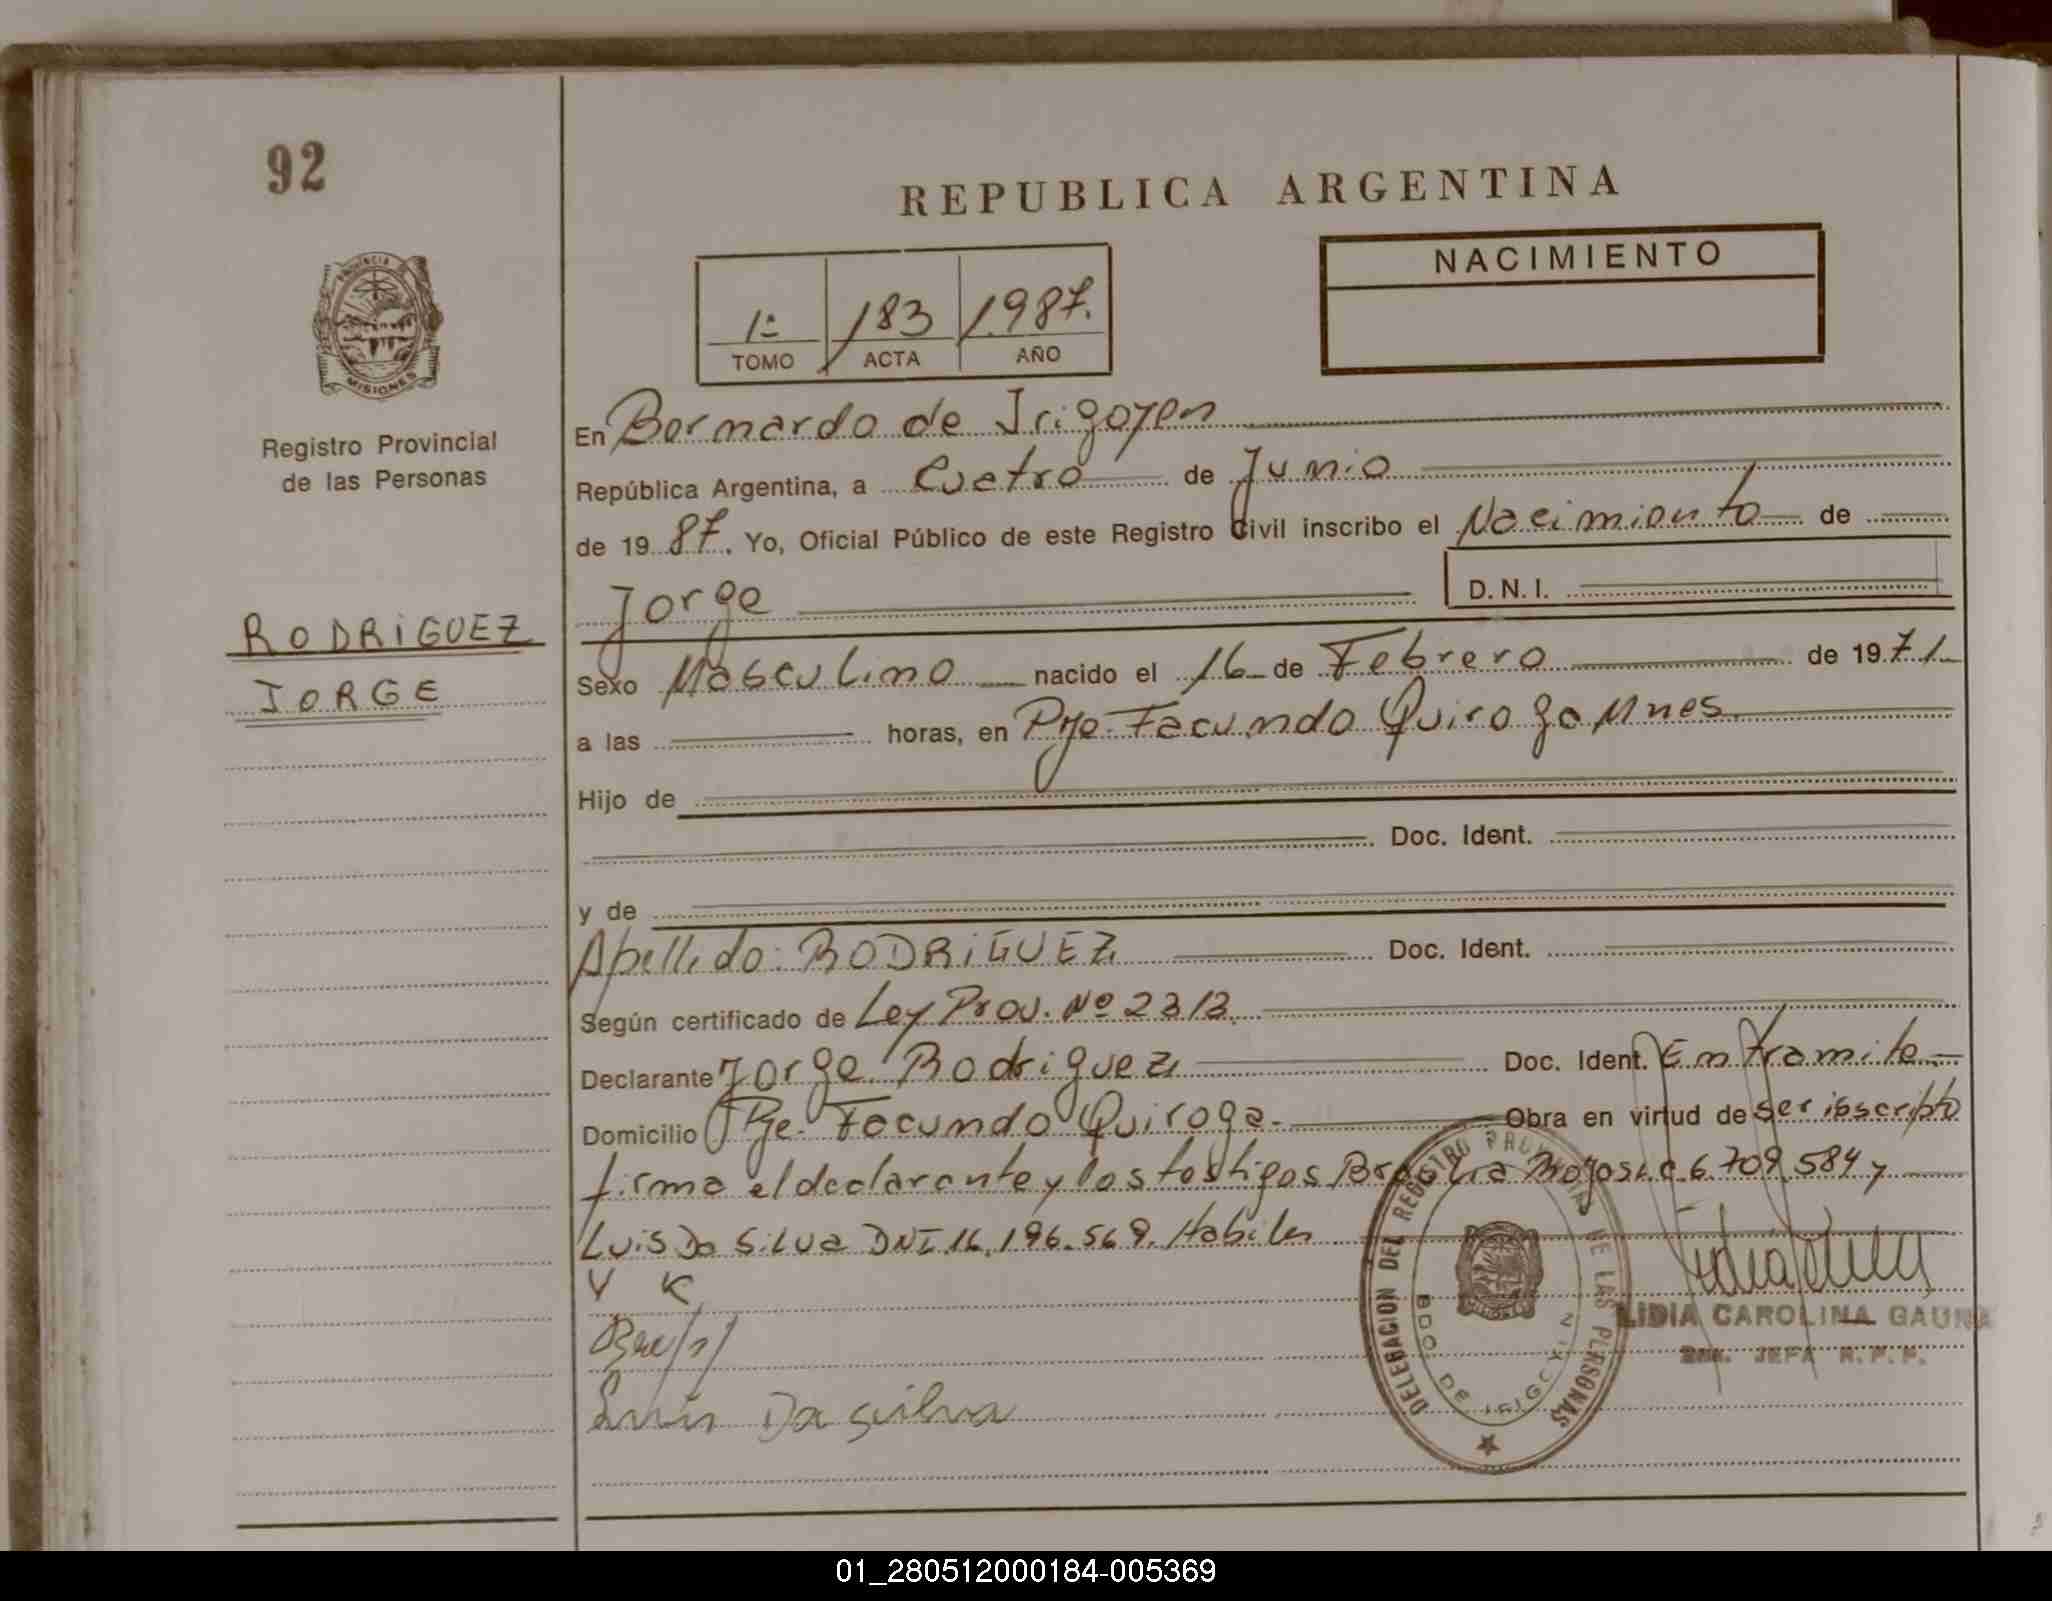 92
REPUBLICA ARGENTINA
NACIMIENTO
1ª 183 1987.
TOMO ACTA AÑO
PROVINCIA DE
MISIONES
Registro Provincial
de las Personas
RODRIGUEZ
JORGE
En Bernardo de Irigoyen
República Argentina, a Cuatro de Junio
de 19 87. Yo, Oficial Público de este Registro Civil inscribo el Nacimiento de
Jorge D.N.I.
Sexo Masculino nacido el 16 de Febrero de 19 71
a las horas, en Pje. Facundo Quiroga Mnes.
Hijo de
Doc. Ident.
y de
Apellido: RODRIGUEZ Doc. Ident.
Según certificado de Ley Prov. Nº 2313.
Declarante Jorge Rodriguez Doc. Ident. En tramite
Domicilio Pje. Facundo Quiroga. Obra en virtud de ser inscripto
firma el declarante y los testigos L.C. 6.709.584 y
Luis Da Silva DNI 16.196.569. Habiles
Luis Da Silva
DELEGACION DEL REGISTRO PROVINCIAL DE LAS PERSONAS
BDO DE IRIGOYEN
LIDIA CAROLINA GAUNA
JEFA R.P.P.
01_280512000184-005369